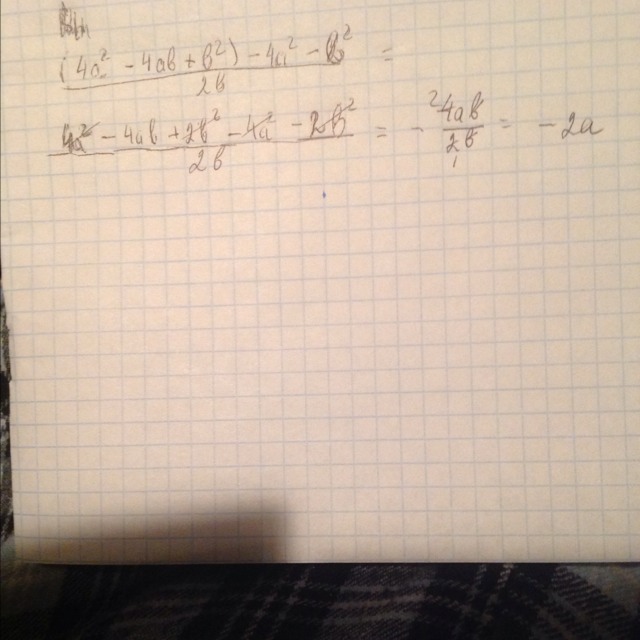 (4a² - 4ab + b²) - 4a² - b² / 2b =
4a² - 4ab + 2b² - 4a² - 2b² / 2b = - 4ab / 2b = - 2a